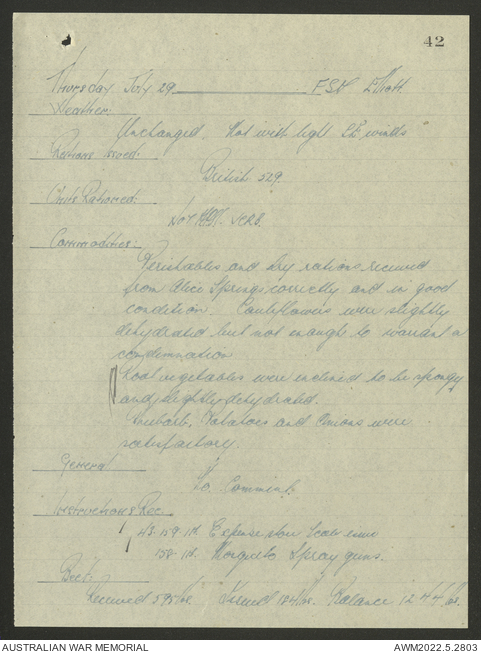 42
Thursday July 29 FSD Elliott
Weather:
Unchanged. Hot with light SE winds
Rations issued:
British 529.
Units Rationed:
Commodities:
Perishables and Dry rations received
from Alice Springs correctly and in good
condition. Cauliflowers were slightly
dehydrated but not enough to warrant a
condemnation
Root vegetables were inclined to be spongy
and slightly dehydrated.
Rhubarb, Potatoes and Onions were
satisfactory.
General
No Comment.
Instructions Rec.
43. 159. Expense store
158. Mosquito Spray guns.
Beef:
Received 595 lbs. Issued lbs. Balance 1244 lbs.
AUSTRALIAN WAR MEMORIAL
AWM2022.5.2803